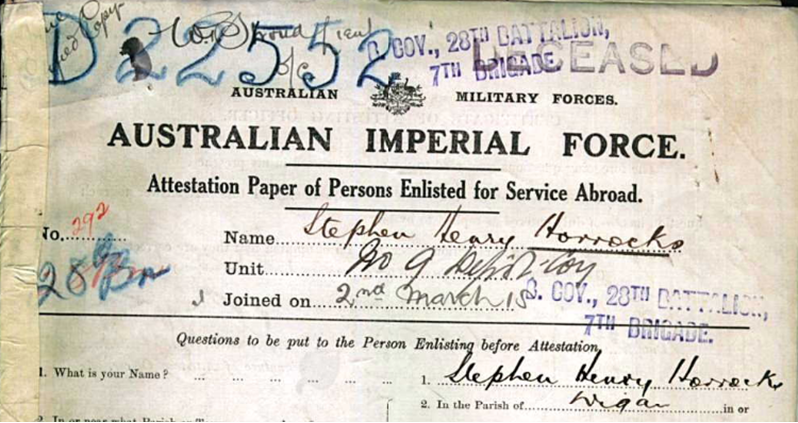 D22552
W. Stroud Lieut
O/C
COY., 28TH BATTALION,
7TH BRIGADE.
DECEASED
AUSTRALIAN MILITARY FORCES.
AUSTRALIAN IMPERIAL FORCE.
Attestation Paper of Persons Enlisted for Service Abroad.
No. 292 Name Stephen Henry Horrocks
28 Bn Unit No 9 Depot Coy
Joined on 2nd March 15
COY., 28TH BATTALION,
7TH BRIGADE.
Questions to be put to the Person Enlisting before Attestation.
1. What is your Name? 1. Stephen Henry Horrocks
2. In the Parish of Wigan in or
2. In or near what Parish or